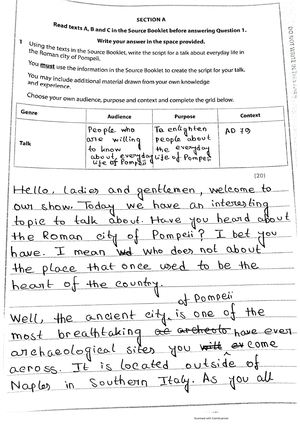 SECTION A
Read texts A, B and C in the Source Booklet before answering Question 1.
Write your answer in the space provided.
1 Using the texts in the Source Booklet, write the script for a talk about everyday life in
the Roman city of Pompeii.
You must use the information in the Source Booklet to create the script for your talk.
You may include additional material drawn from your own knowledge
and experience.
Choose your own audience, purpose and context and complete the grid below.
Genre Audience Purpose Context
Talk People who are willing to know about everyday life of Pompeii To enlighten people about the everyday life of Pompeii AD 79
(20)
Hello, ladies and gentlemen, welcome to
our show. Today we have an interesting
topic to talk about. Have you heard about
the Roman city of Pompeii? I bet you
have. I mean who does not about
the place that once used to be the
heart of the country.
of Pompeii
Well, the ancient city is one of the
most breathtaking archeolo have ever
archaeological sites you will come
across. It is located outside of
Naples in Southern Italy. As you all
Scanned with CamScanner